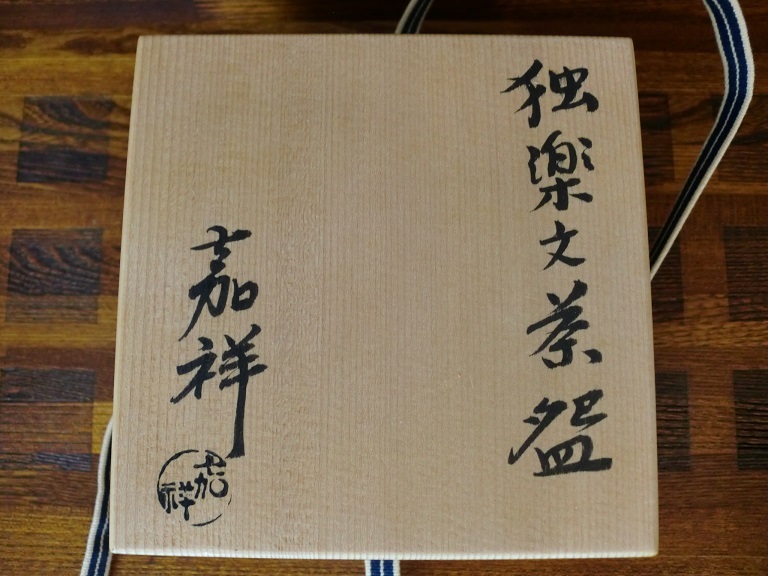 独楽文茶盌
嘉祥
嘉祥